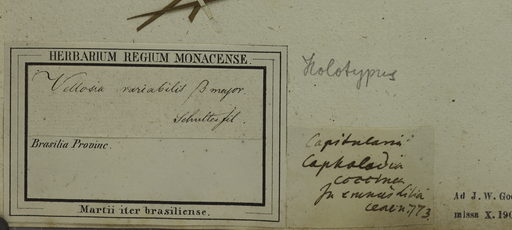 HERBARIUM REGIUM MONACENSE.
Vellosia variabilis β major
Schultes fil.
Brasilia Provinc.
Martii iter brasiliense.
Holotypus
Capitularia
coccinea
773
Ad J. W.
missa X.